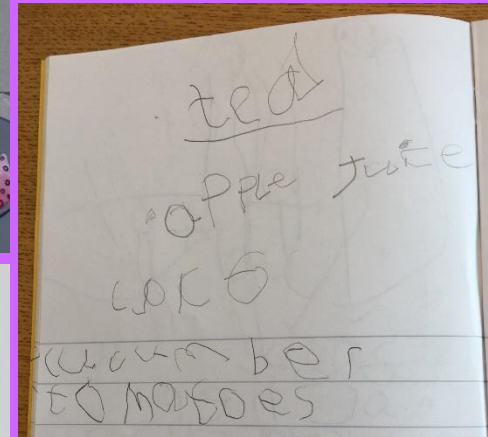 ted
apple juice
cucumber
tomatoes